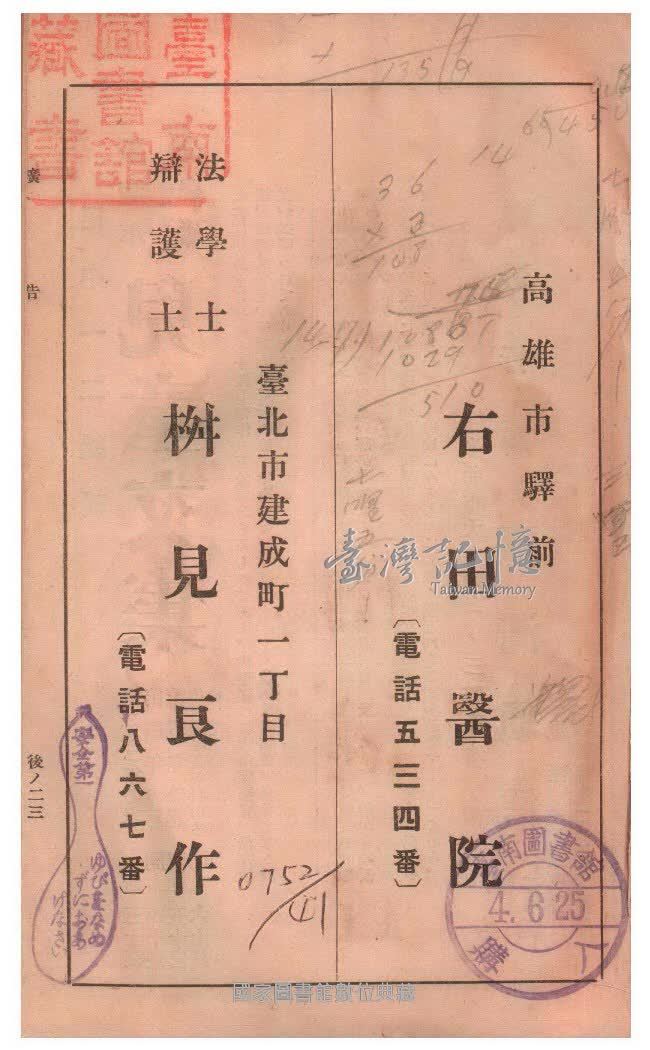 高雄市驛前
右田醫院
〔電話五三四番〕
臺北市建成町一丁目
法學士
辯護士
桝見良作
〔電話八六七番〕
廣告
後ノ二三
臺南
圖書館
藏書
臺灣記憶
Taiwan Memory
南圖書館
4.6.25
購
安全第一
ゆび
36
108
14
1029
510
0752/41
國家圖書館數位典藏